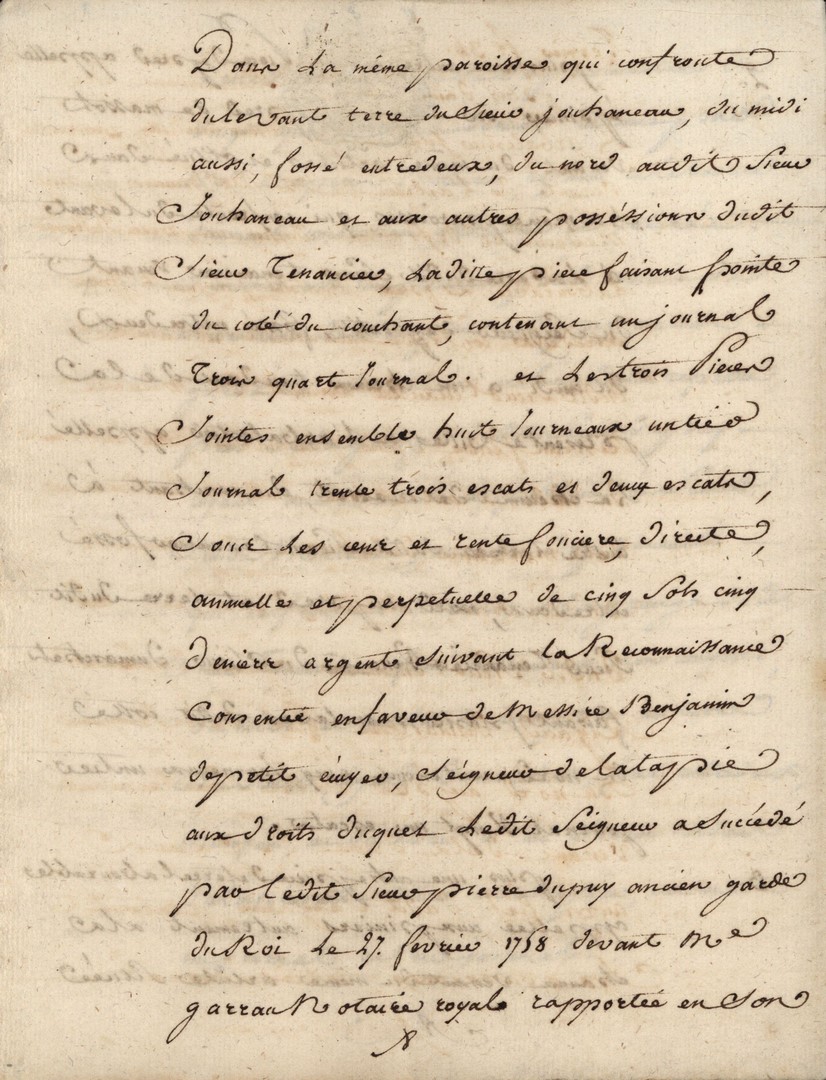 Dans la même paroisse qui confronte
du levant terre du Sieur jouhaneau, du midi
aussi, fossé entredeux, du nord audit Sieur
Jouhaneau et aux autres posséssions dudit
Sieur Tenancier, Laditte piece faisant pointe
du coté du couchant, contenant un journal
Trois quart Journal. et Les trois Pieces
Jointes ensemble huit Journeaux un tiers
Journal trente trois escats et deux escats,
Sous Les cens et rente fonciere, directe,
annuelle et perpetuelle de cinq Sols cinq
deniers argent Suivant la Reconnaissance
Consentie en faveur de Messire Benjamin
de petit écuyer, Seigneur de latapie
aux droits duquel Ledit Seigneur a Succédé
par Ledit Sieur pierre dupuy ancien garde
du Roi Le 27. fevrier 1758 devant Me
garrau Notaire royal rapportée en Son